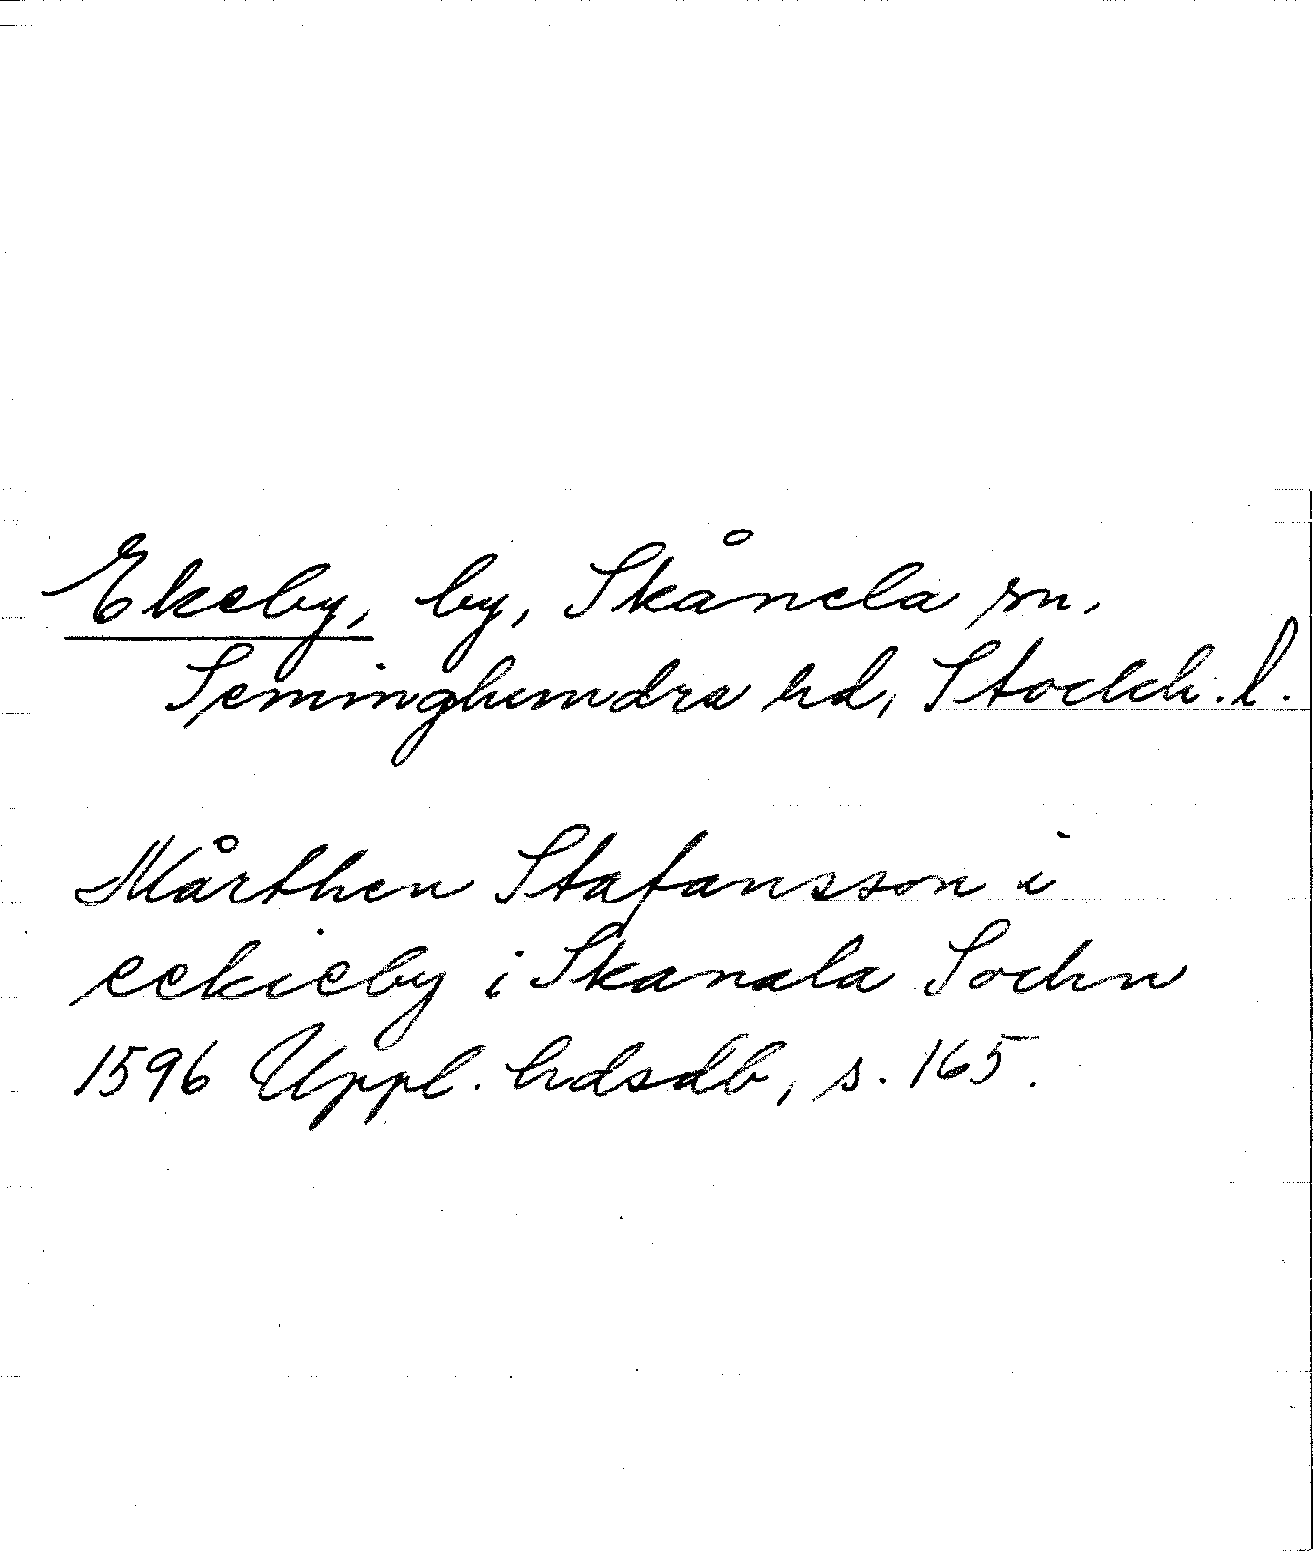 Ekeby, by, Skånela sn,
Seminghundra hd, Stockh. l.
Mårthen Stafansson i
eekieby i Skanala Sochn
1596 Uppl. hdsdb, s. 165.